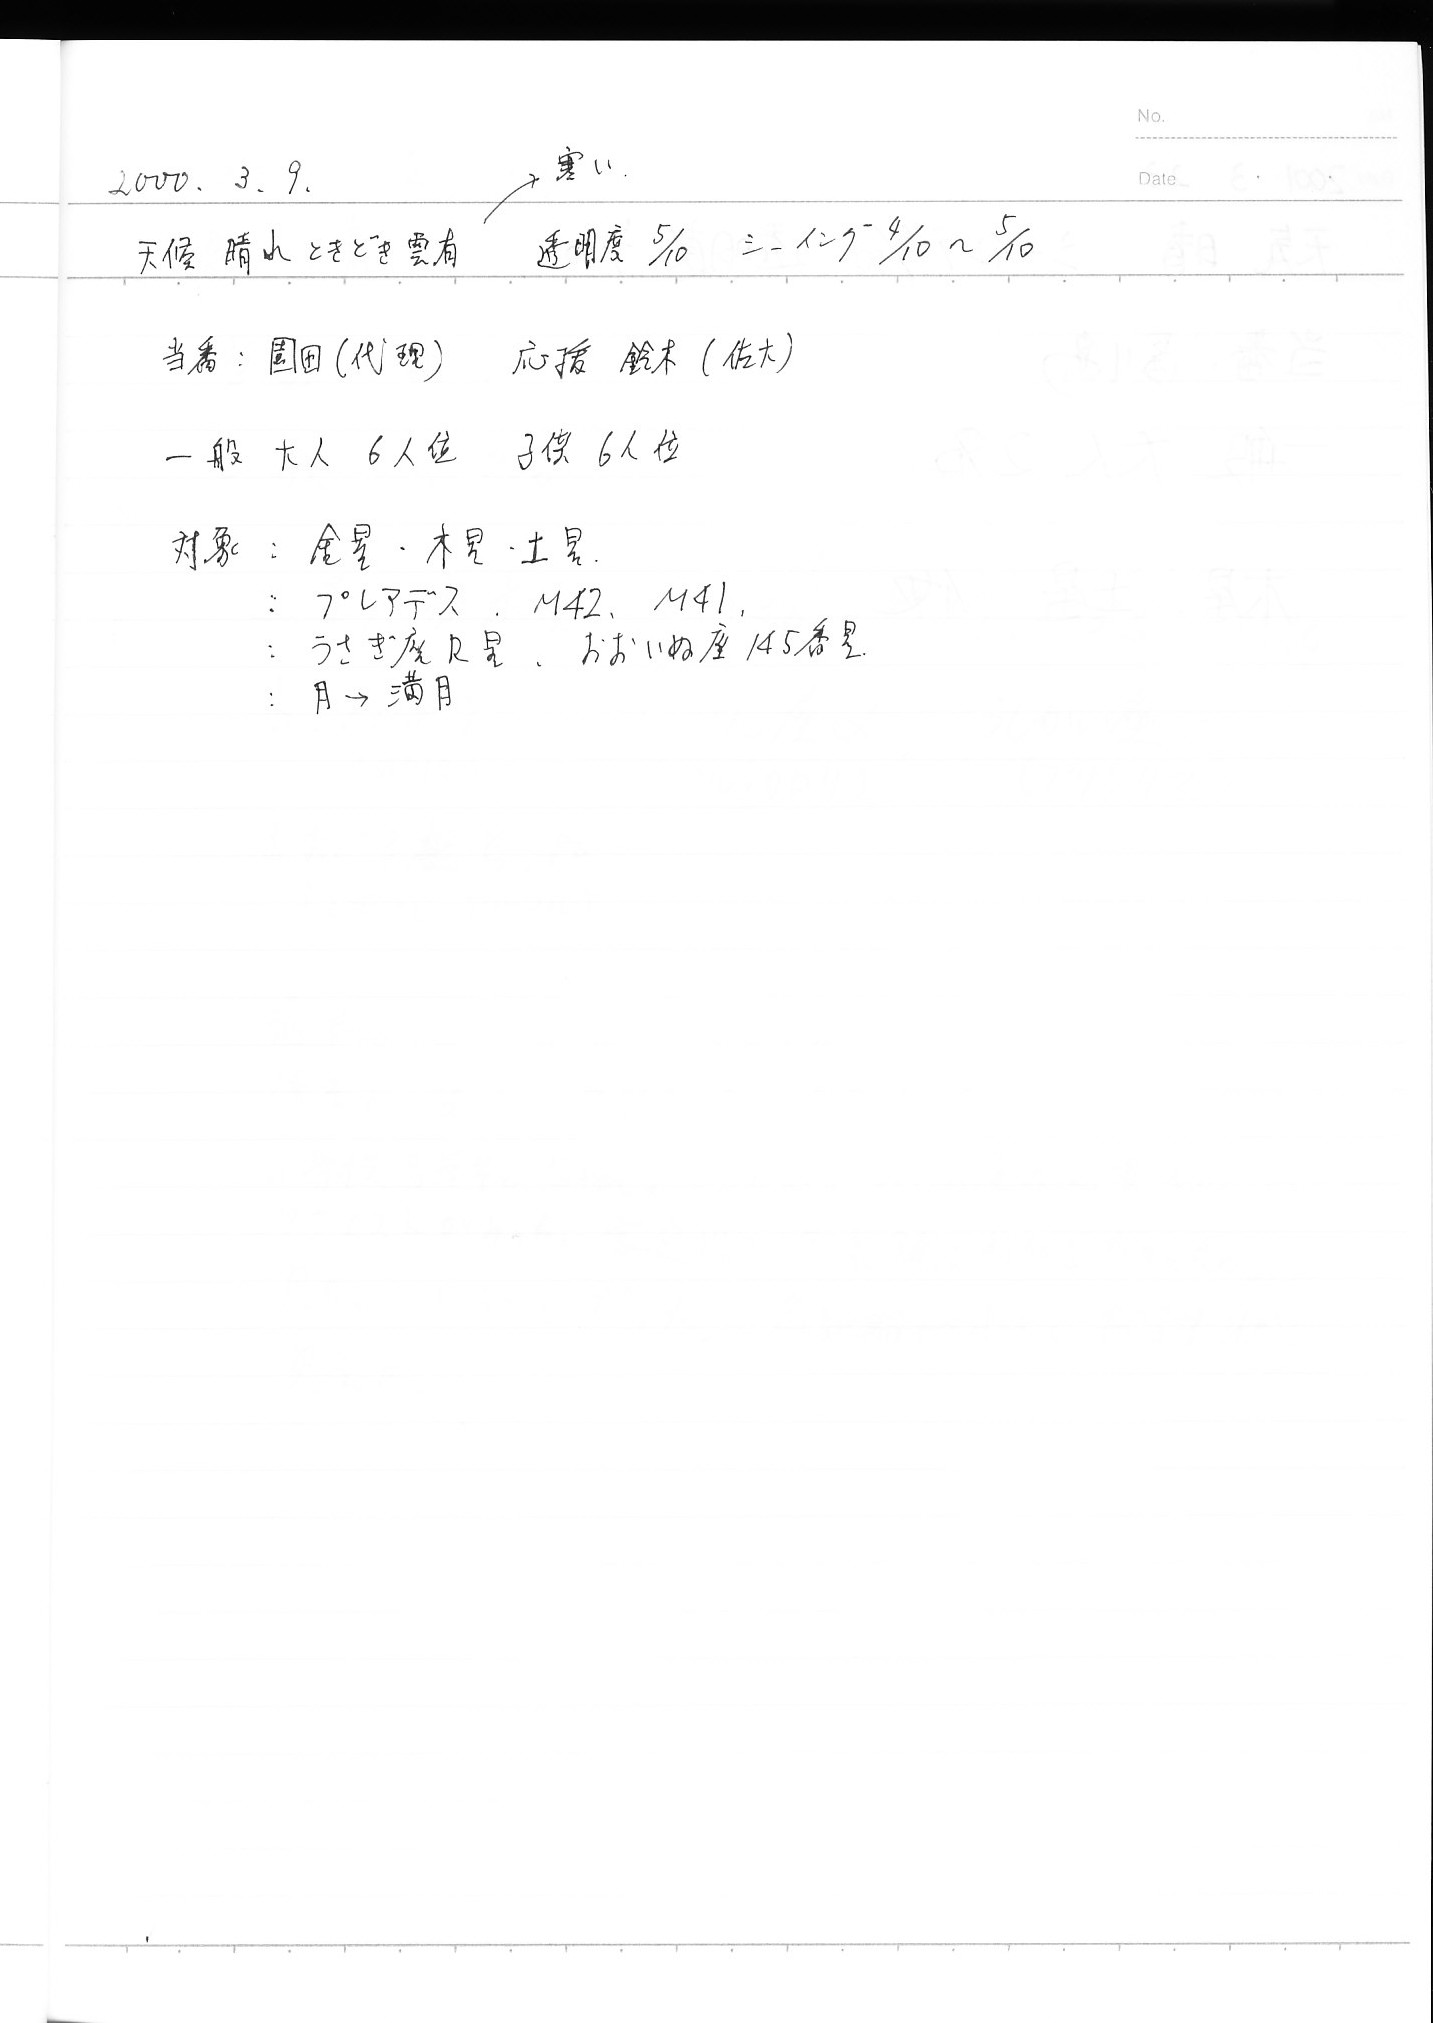 No.
寒い.
2000. 3. 9.
Date
天候 晴れ ときどき雲有 透明度 5/10 シーイング 4/10 〜 5/10
当番: 園田(代理) 応援 鈴木(佐大)
一般 大人 6人位 子供 6人位
対象 : 金星・木星・土星.
: プレアデス. M42、M41,
: うさぎ座R星、おおいぬ座145番星.
: 月→満月